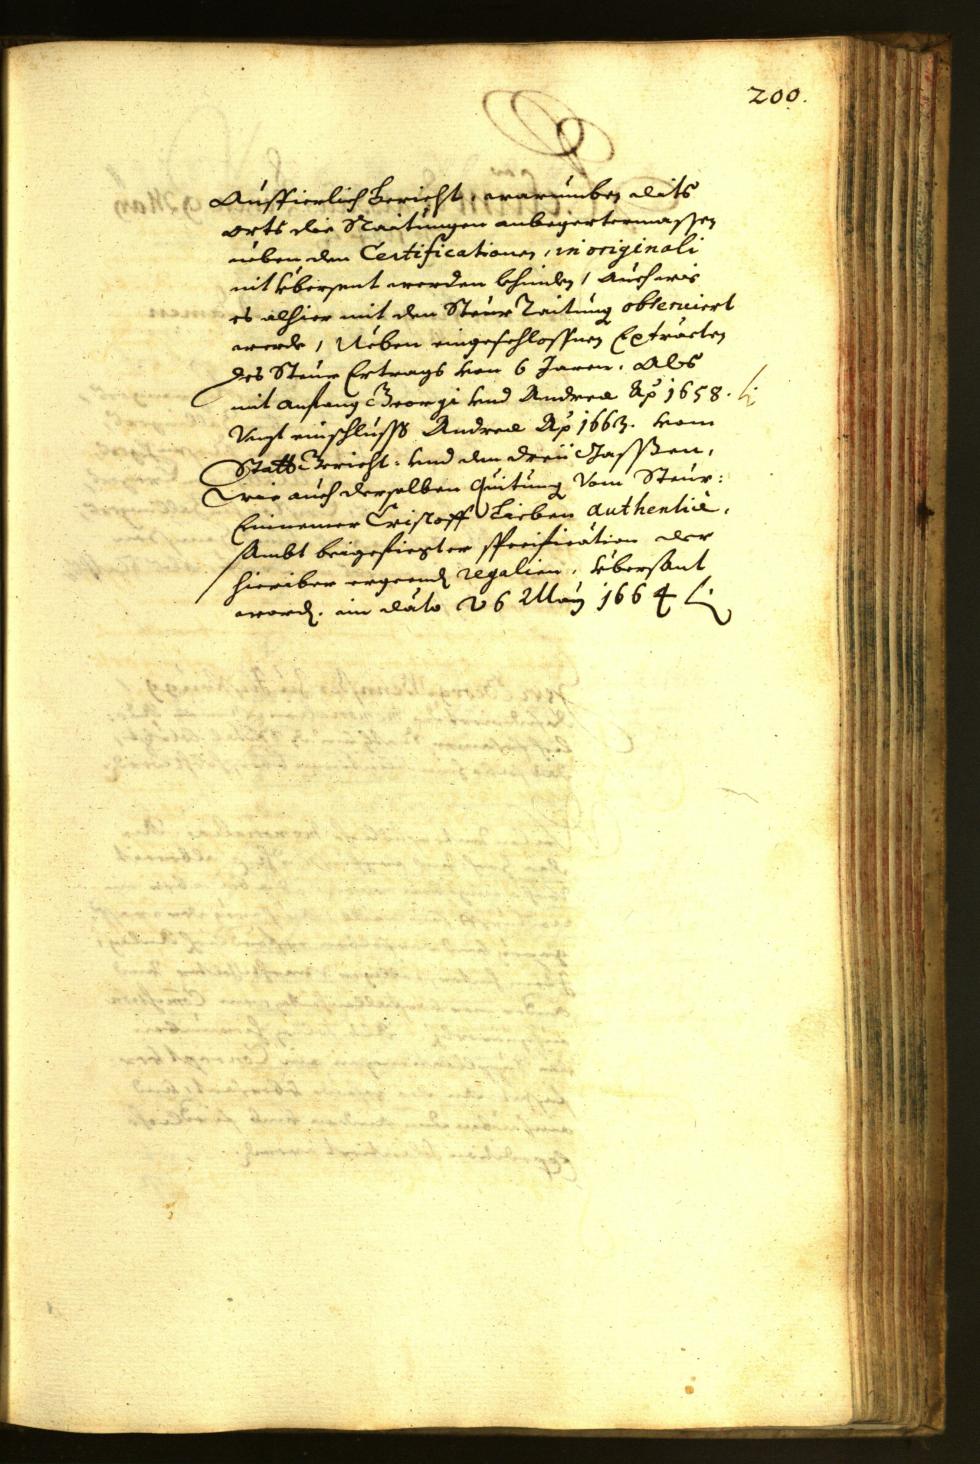 200.
Ausfierlich Bericht, warumben dits
orts die Raitungen anbegertermassen
neben den Certificationen, in originali
nit ybersent werden khinden, auch wie
es alhier mit den Steur Raitung obseruiert
werde, Neben eingeschlossnen Extracten
des Steur Ertrags von 6 Jaren, Als
mit anfang Georgi vnd Andreæ Aº 1658.
Vnzt einschluss Andreæ Aº 1663. vom
Statt Gericht, vnd den dreÿ Gassen,
wie auch derselben Quitung vom Steur-
Einnemer Cristoff Lieben authentice,
sambt beigefiegter specification der
hieriber ergeend regalien, ybersant
word. sin dato 26 Maÿ 1664